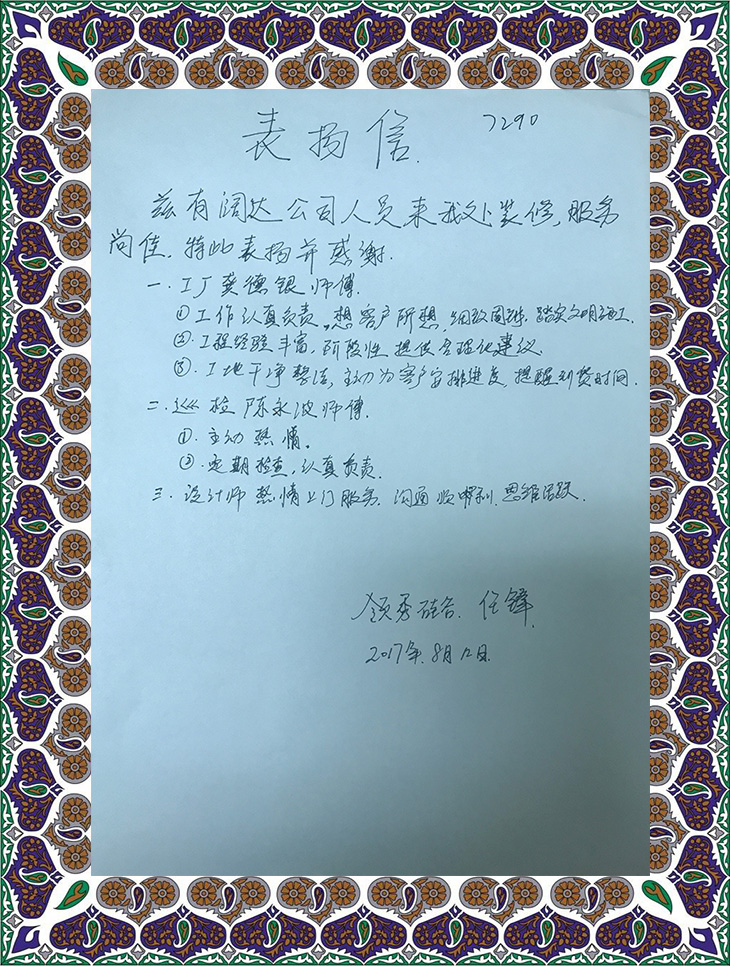 表扬信.
7290
兹有阔达公司人员来我处装修,服务
尚佳.特此表扬并感谢.
一.工厂龚德银师傅.
①工作认真负责,想客户所想,细致周到.踏实文明施工.
②.工程经验丰富,阶段性提供合理化建议.
③.工地干净整洁,主动为客户安排进度,提醒付费时间.
二.巡检陈永波师傅.
①.主动热情。
②.定期检查,认真负责.
三.设计师热情上门服务.沟通顺利.思维活跃.
领秀硅谷.任锋.
2017年.8月12日.